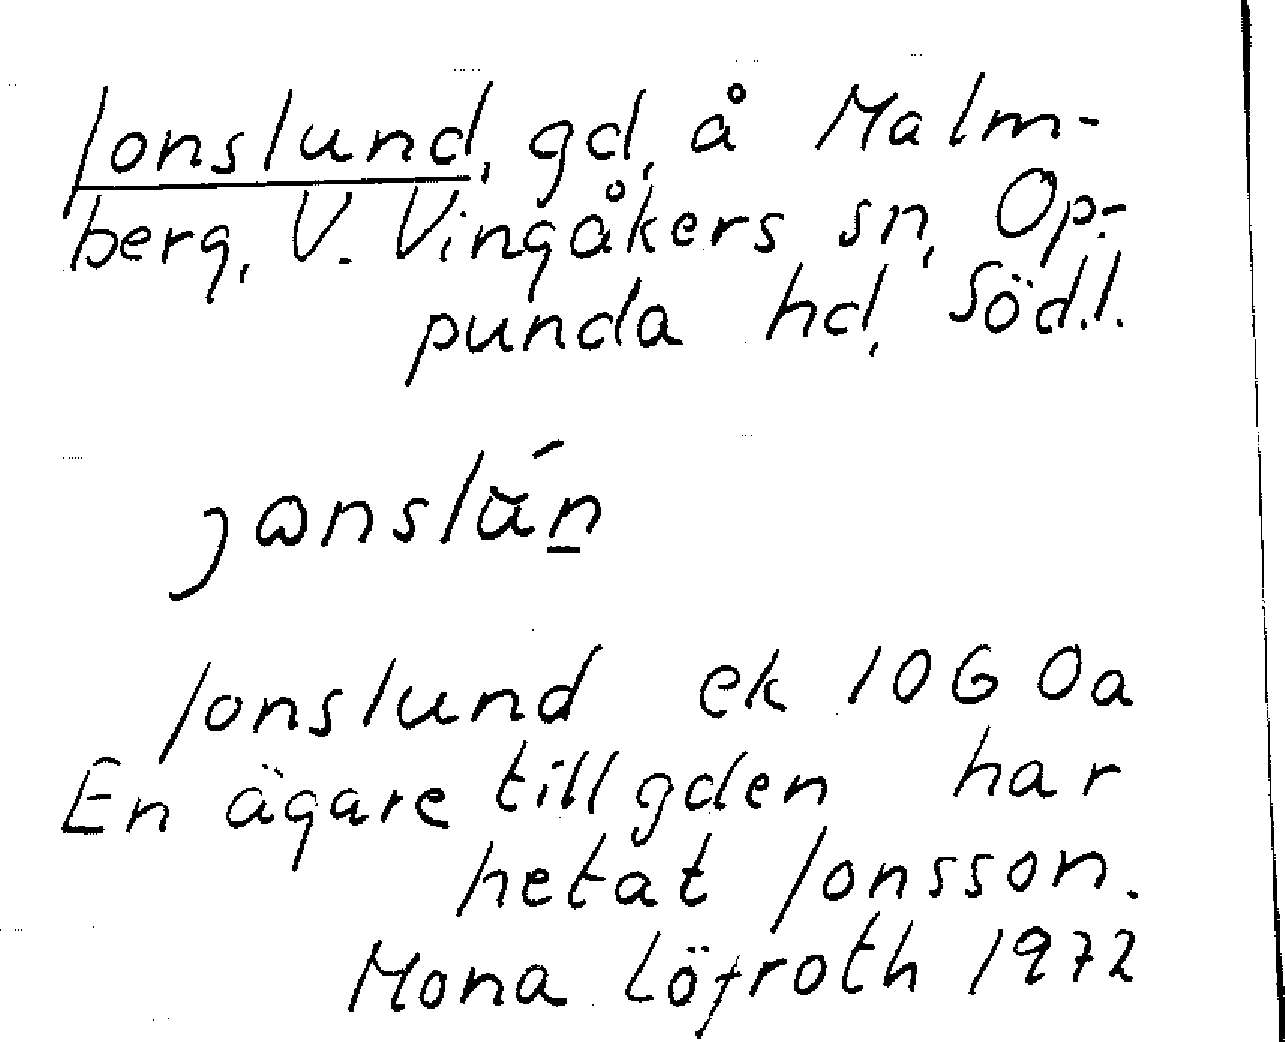 Jonslund, gd, å Malm-
berg, V. Vingåkers sn, Op-
punda hd, Söd.l.
Jonslund ek 10G 0a
En ägare till gden har
hetat Jonsson.
Mona Löfroth 1972